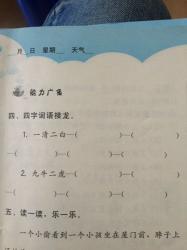 月 日 星期 天气
能力广角
四、四字词语接龙。
1. 一清二白—( )—( )
—( )—( )—( )—( )
2. 九牛二虎—( )—( )
—( )—( )—( )—( )
五、读一读，乐一乐。
一个小偷看到一个小孩坐在屋门前，脖子上